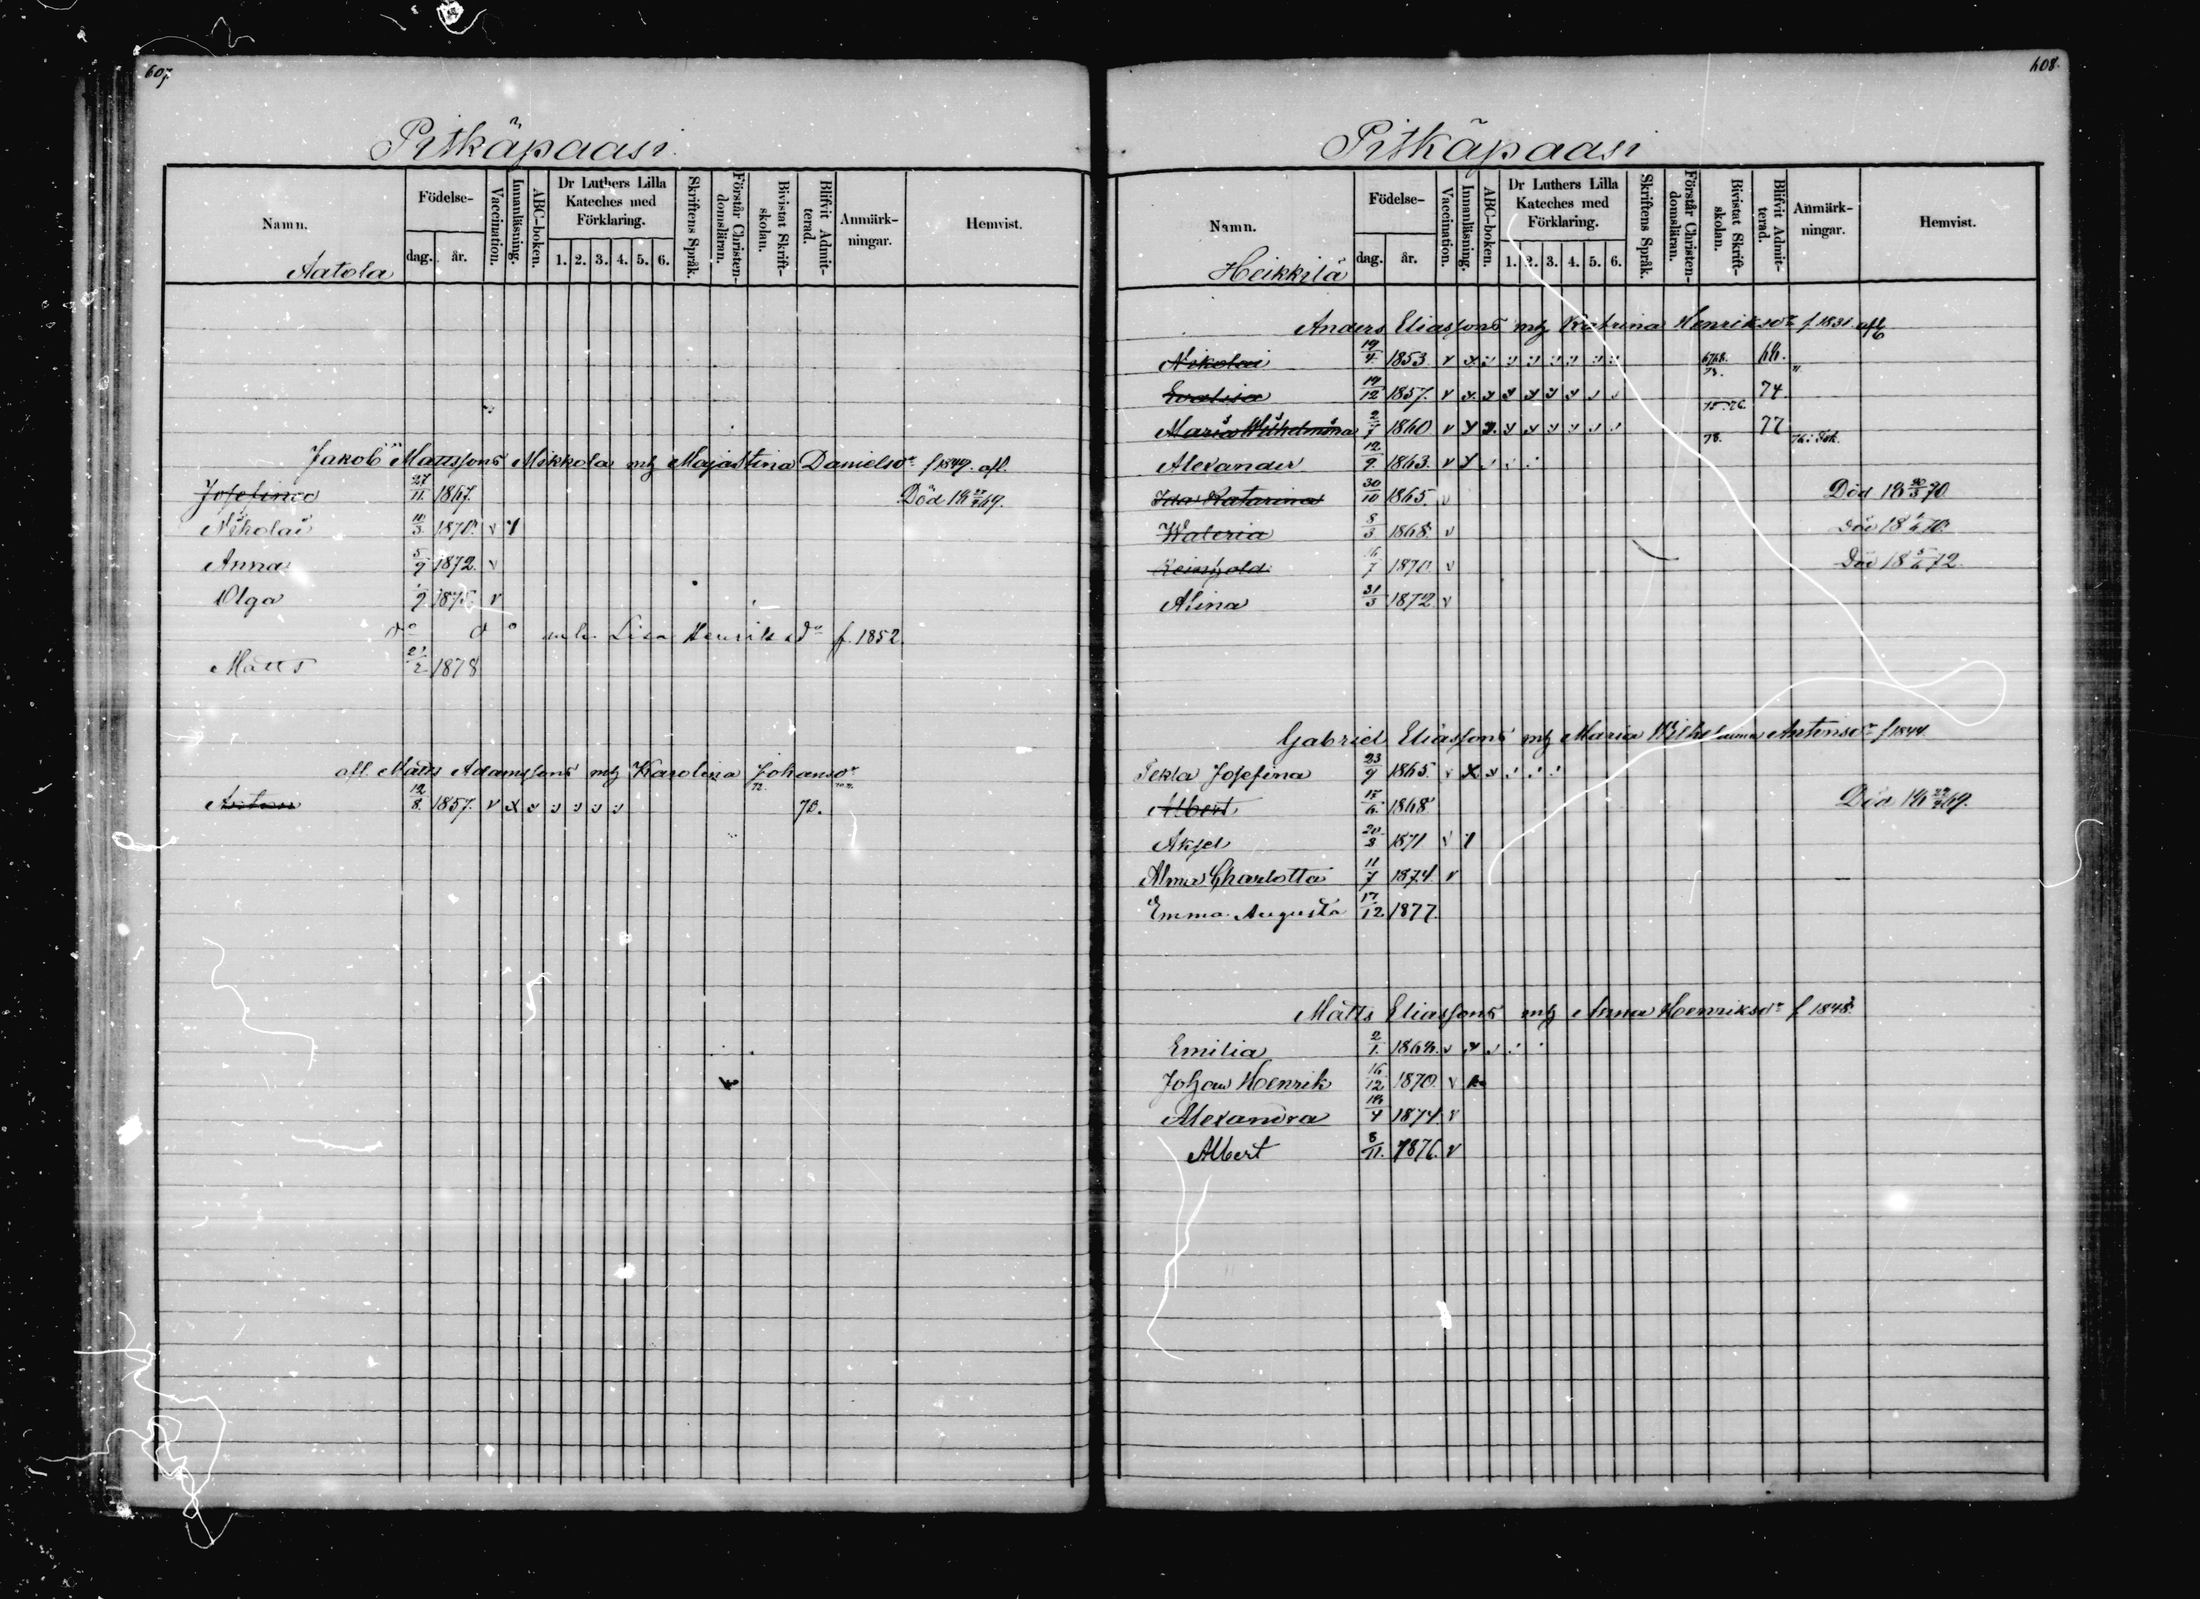 607
Pitkäpaasi
Namn.
Födelse-
dag.
år.
Vaccination.
Innanläsning.
ABC-boken.
Dr Luthers Lilla Kateches med Förklaring.
1. 2. 3. 4. 5. 6.
Skriftens Språk.
Förstår Christen-domsläran.
Bivistat Skrift-skolan.
Blifvit Admit-terad.
Anmärk-ningar.
Hemvist.
Aatola
Jakob Mattssons Mikkola mh Maja Stina Danielsdr f 1849. afl.
Josefina 27/11 1867. Död
Nikolai 10/3 1870. v
Anna 5/9 1872. v
Olga 1875. v
do do mh. Lisa Henriksdo f. 1852.
Matts 1878
afl. Matts Adamssons mh Karolina Johansdr
72.
Anton 12/8 1857. v x 70.
608.
Pitkäpaasi
Namn.
Födelse-
dag.
år.
Vaccination.
Innanläsning.
ABC-boken.
Dr Luthers Lilla Kateches med Förklaring.
1. 2. 3. 4. 5. 6.
Skriftens Språk.
Förstår Christen-domsläran.
Bivistat Skrift-skolan.
Blifvit Admit-terad.
Anmärk-ningar.
Hemvist.
Heikkilä
Anders Eliassons mh Katrina Henriksdr f 1831.
Nikolai 19/4 1853. v x 68.
73.
Evalisa 14/12 1857. v 74.
75. 76.
Maria Wilhelmina 1860 v 77
78.
Alexander 12/9 1863. v
Ida Katarina 30/10 1865. v Död 18 20/3 70
Waleria 8/3 1868. v Död
Reinhold 1870. v Död 18 72.
Alina 31/3 1872 v
Gabriel Eliassons mh Maria Wilhelmina Antonsdr f 1844
Tekla Josefina 23/9 1865. v x
Albert 1868 Död
Aksel 1871 v
Alma Charlotta 11/7 1874. v
Emma Augusta 17/12 1877.
Matts Eliassons mh Anna Henriksdr f 1848.
Emilia 2/1. 1868. v
Johan Henrik 16/12 1870. v
Alexandra 18/4 1874. v
Albert 8/11. 1876. v